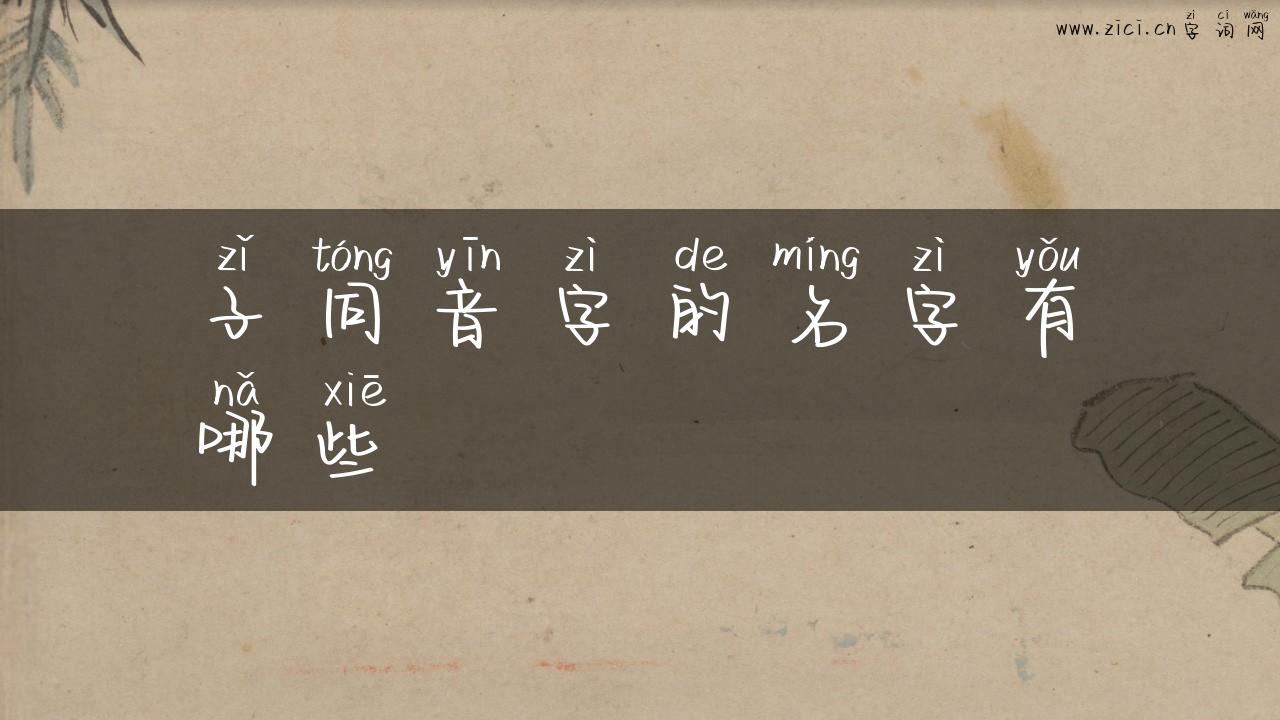 zì cí wǎng
www.zici.cn 字 词 网
zǐ tóng yīn zì de míng zì yǒu
子 同 音 字 的 名 字 有
nǎ xiē
哪 些